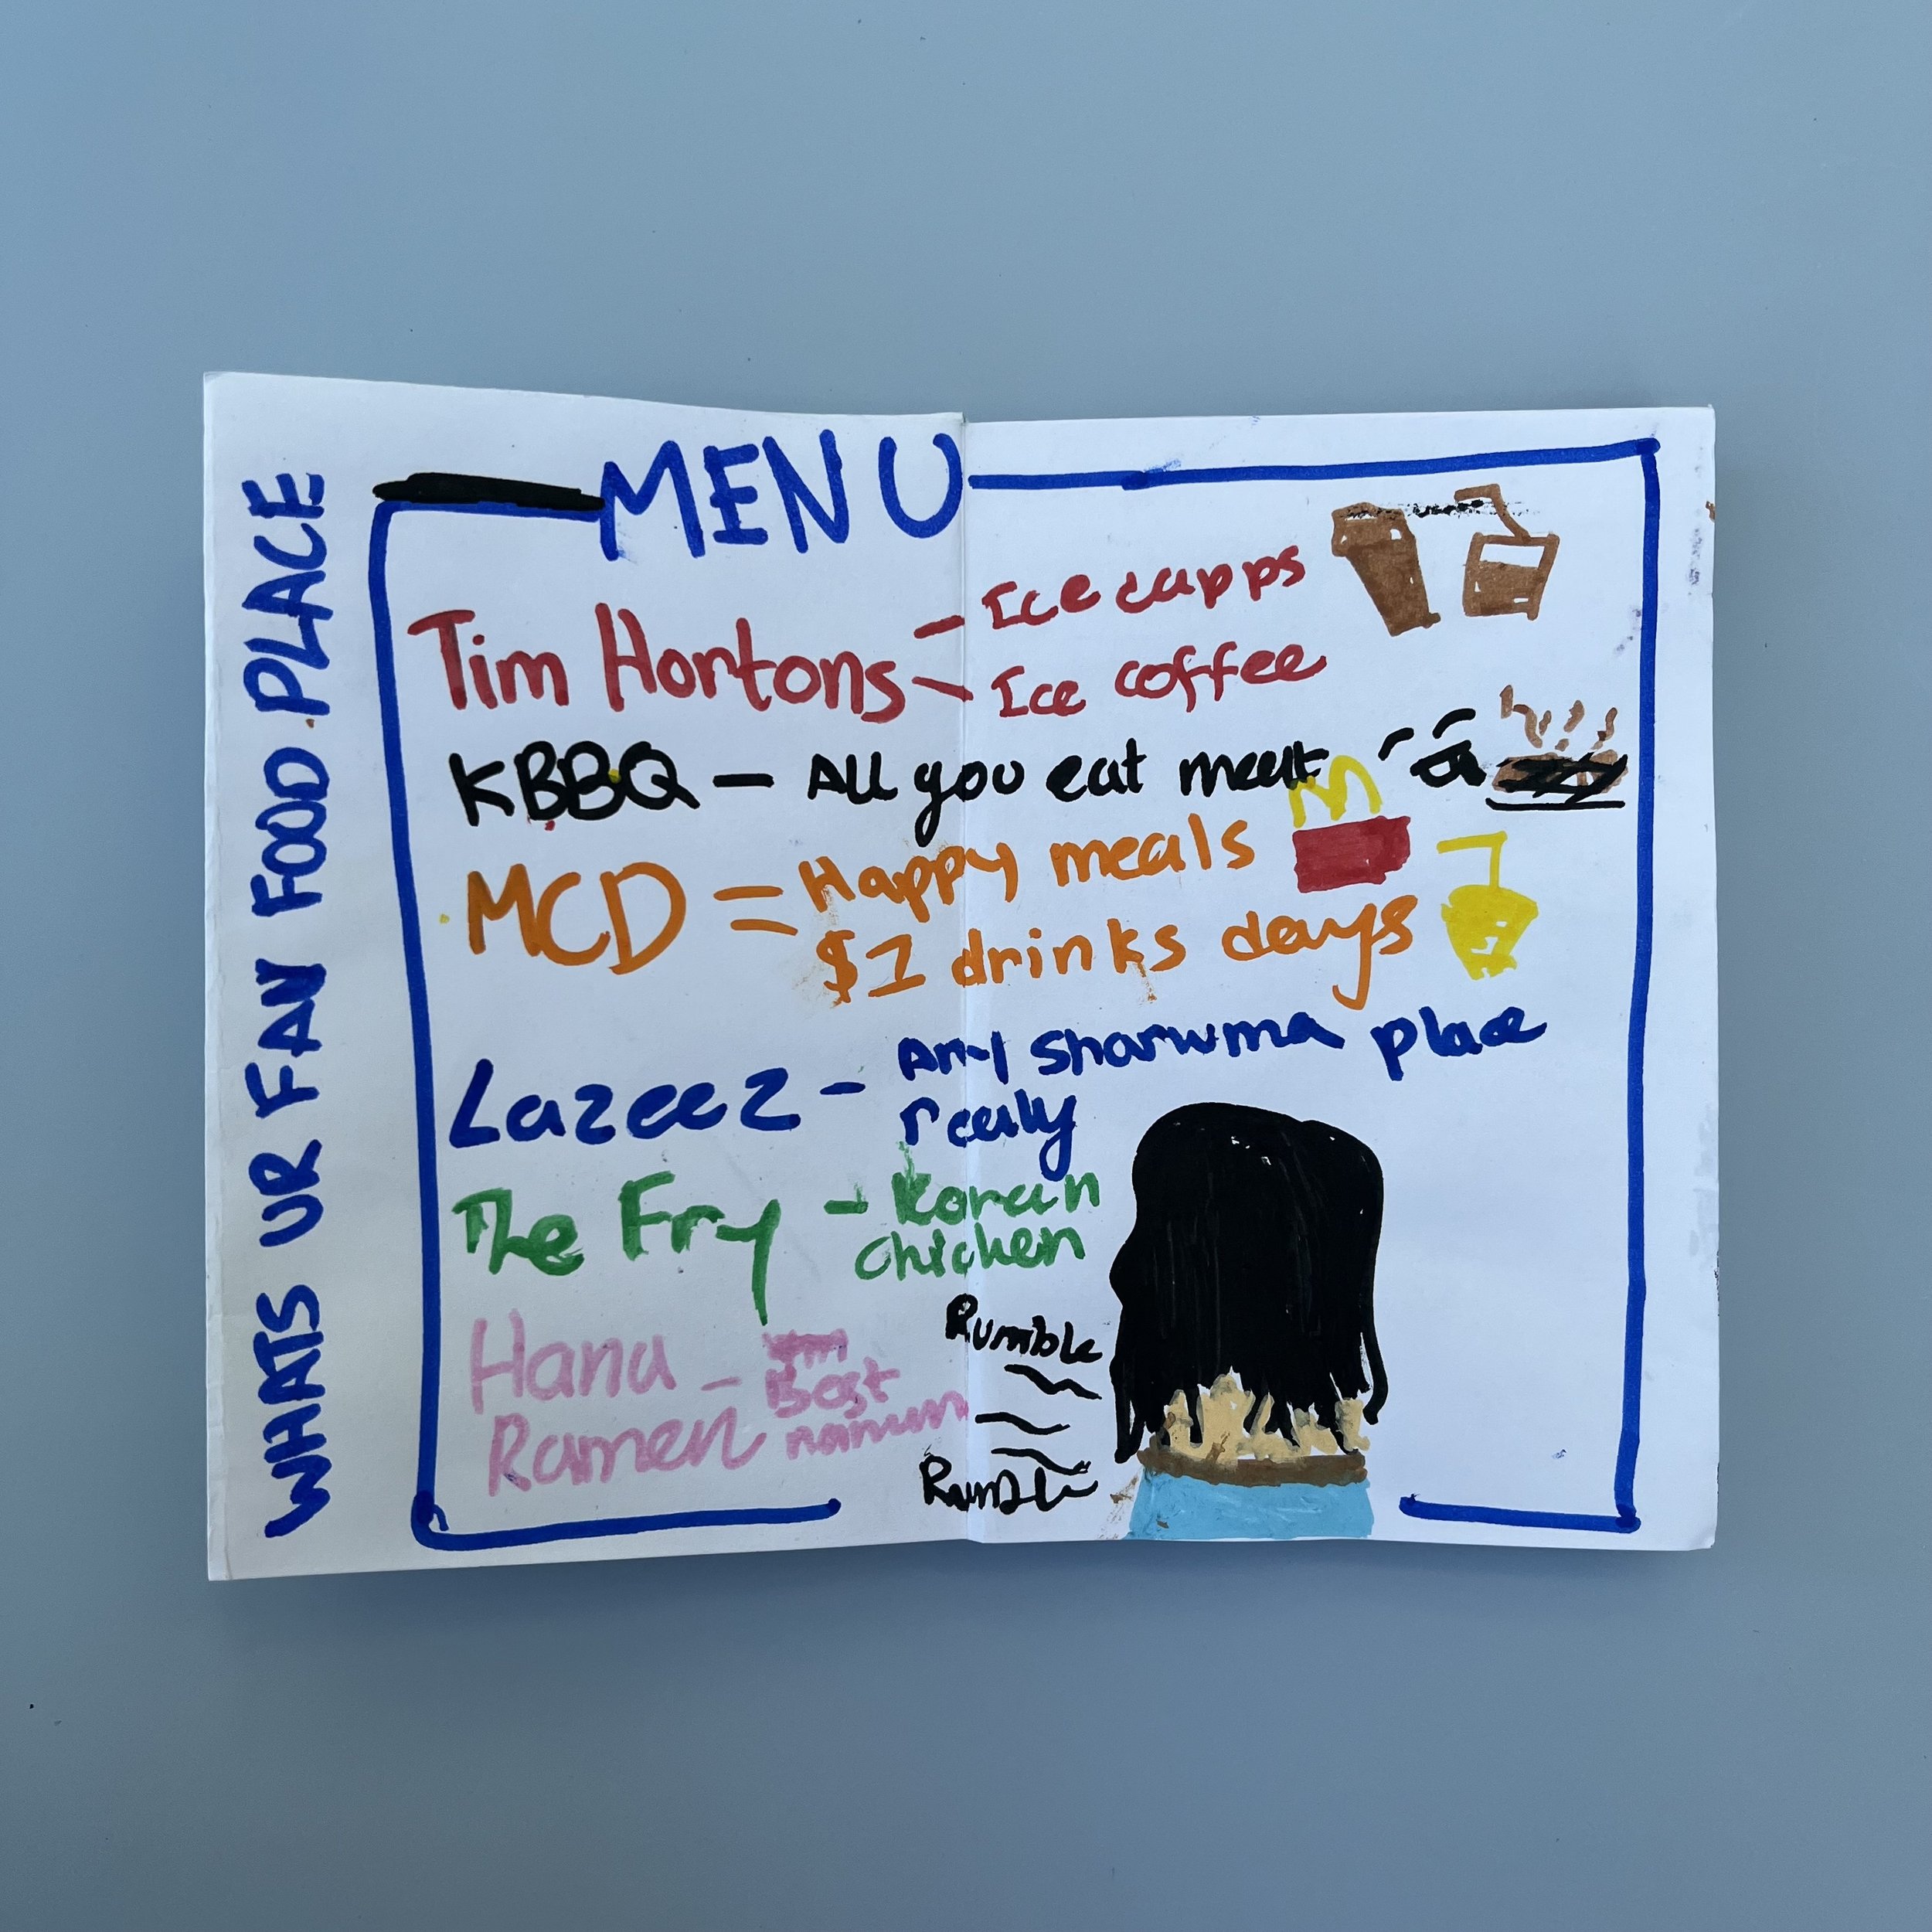 WHATS UR FAV FOOD PLACE
MENU
Tim Hortons - Ice capps
- Ice coffee
KBBQ - All you eat meat
MCD - Happy meals
- $1 drinks days
Lazeez - Any sharwma place
really
The Fry - Korean
chicken
Hana - Best
Ramen
Rumble
Rumble